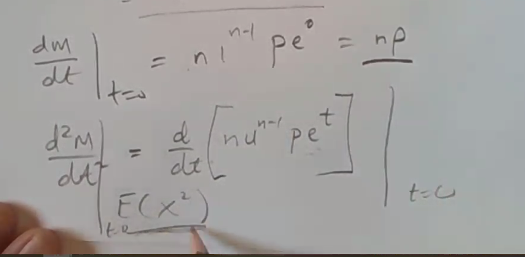 dM/dt |t=0 = n 1^(n-1) p e^0 = np
d²M/dt² |t=0 = d/dt [n u^(n-1) p e^t] |t=0
E(X²)